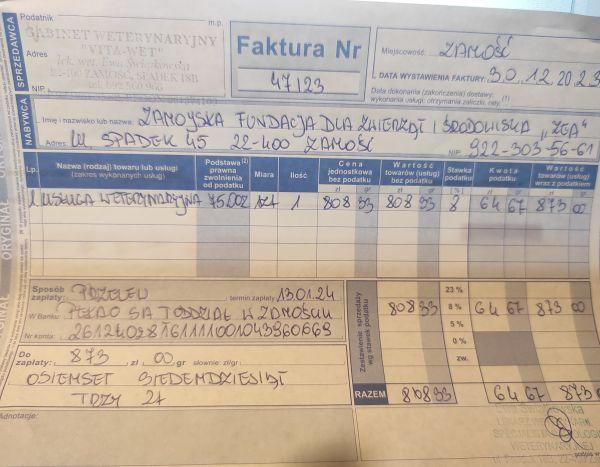 Podatnik
m.p.
SPRZEDAWCA
GABINET WETERYNARYJNY
"VITA-WET"
Adres
lek. wet. Ewa
22-400 ZAMOŚĆ, SPADEK 15B
NIP
Faktura Nr
47/23
Miejscowość: ZAMOŚĆ
DATA WYSTAWIENIA FAKTURY: 30.12.2023
Data dokonania (zakończenia) dostawy;
wykonania usługi; otrzymania zaliczki, raty (1)
NABYWCA
Imię i nazwisko lub nazwa: ZAMOJSKA FUNDACJA DLA ZWIERZĄT I ŚRODOWISKA "ZEA"
Adres: UL SPADEK 45 22-400 ZAMOŚĆ NIP 922-303-56-61
Lp. Nazwa (rodzaj) towaru lub usługi (zakres wykonanych usług) Podstawa (2) prawna zwolnienia od podatku Miara Ilość Cena jednostkowa bez podatku zł gr Wartość towarów (usług) bez podatku zł gr Stawka podatku [%] Kwota podatku zł gr Wartość towarów (usług) wraz z podatkiem zł gr
1 USŁUGA WETERYNARYJNA 75.00Z szt 1 808 33 808 33 8 64 67 873 00
ORYGINAŁ
Sposób zapłaty: PRZELEW termin zapłaty 13.01.24
W Banku: PEKAO SA I ODDZIAŁ W ZAMOŚCIU
Nr konta:
Zestawienie sprzedaży wg stawek podatku
23 %
808 33 8 % 64 67 873 00
5 %
0 %
zw.
RAZEM 808 33 64 67 873 00
Do zapłaty: 873 zł 00 gr słownie: zł/gr
OSIEMSET SIEDEMDZIESIĄT
TRZY ZŁ
Adnotacje: